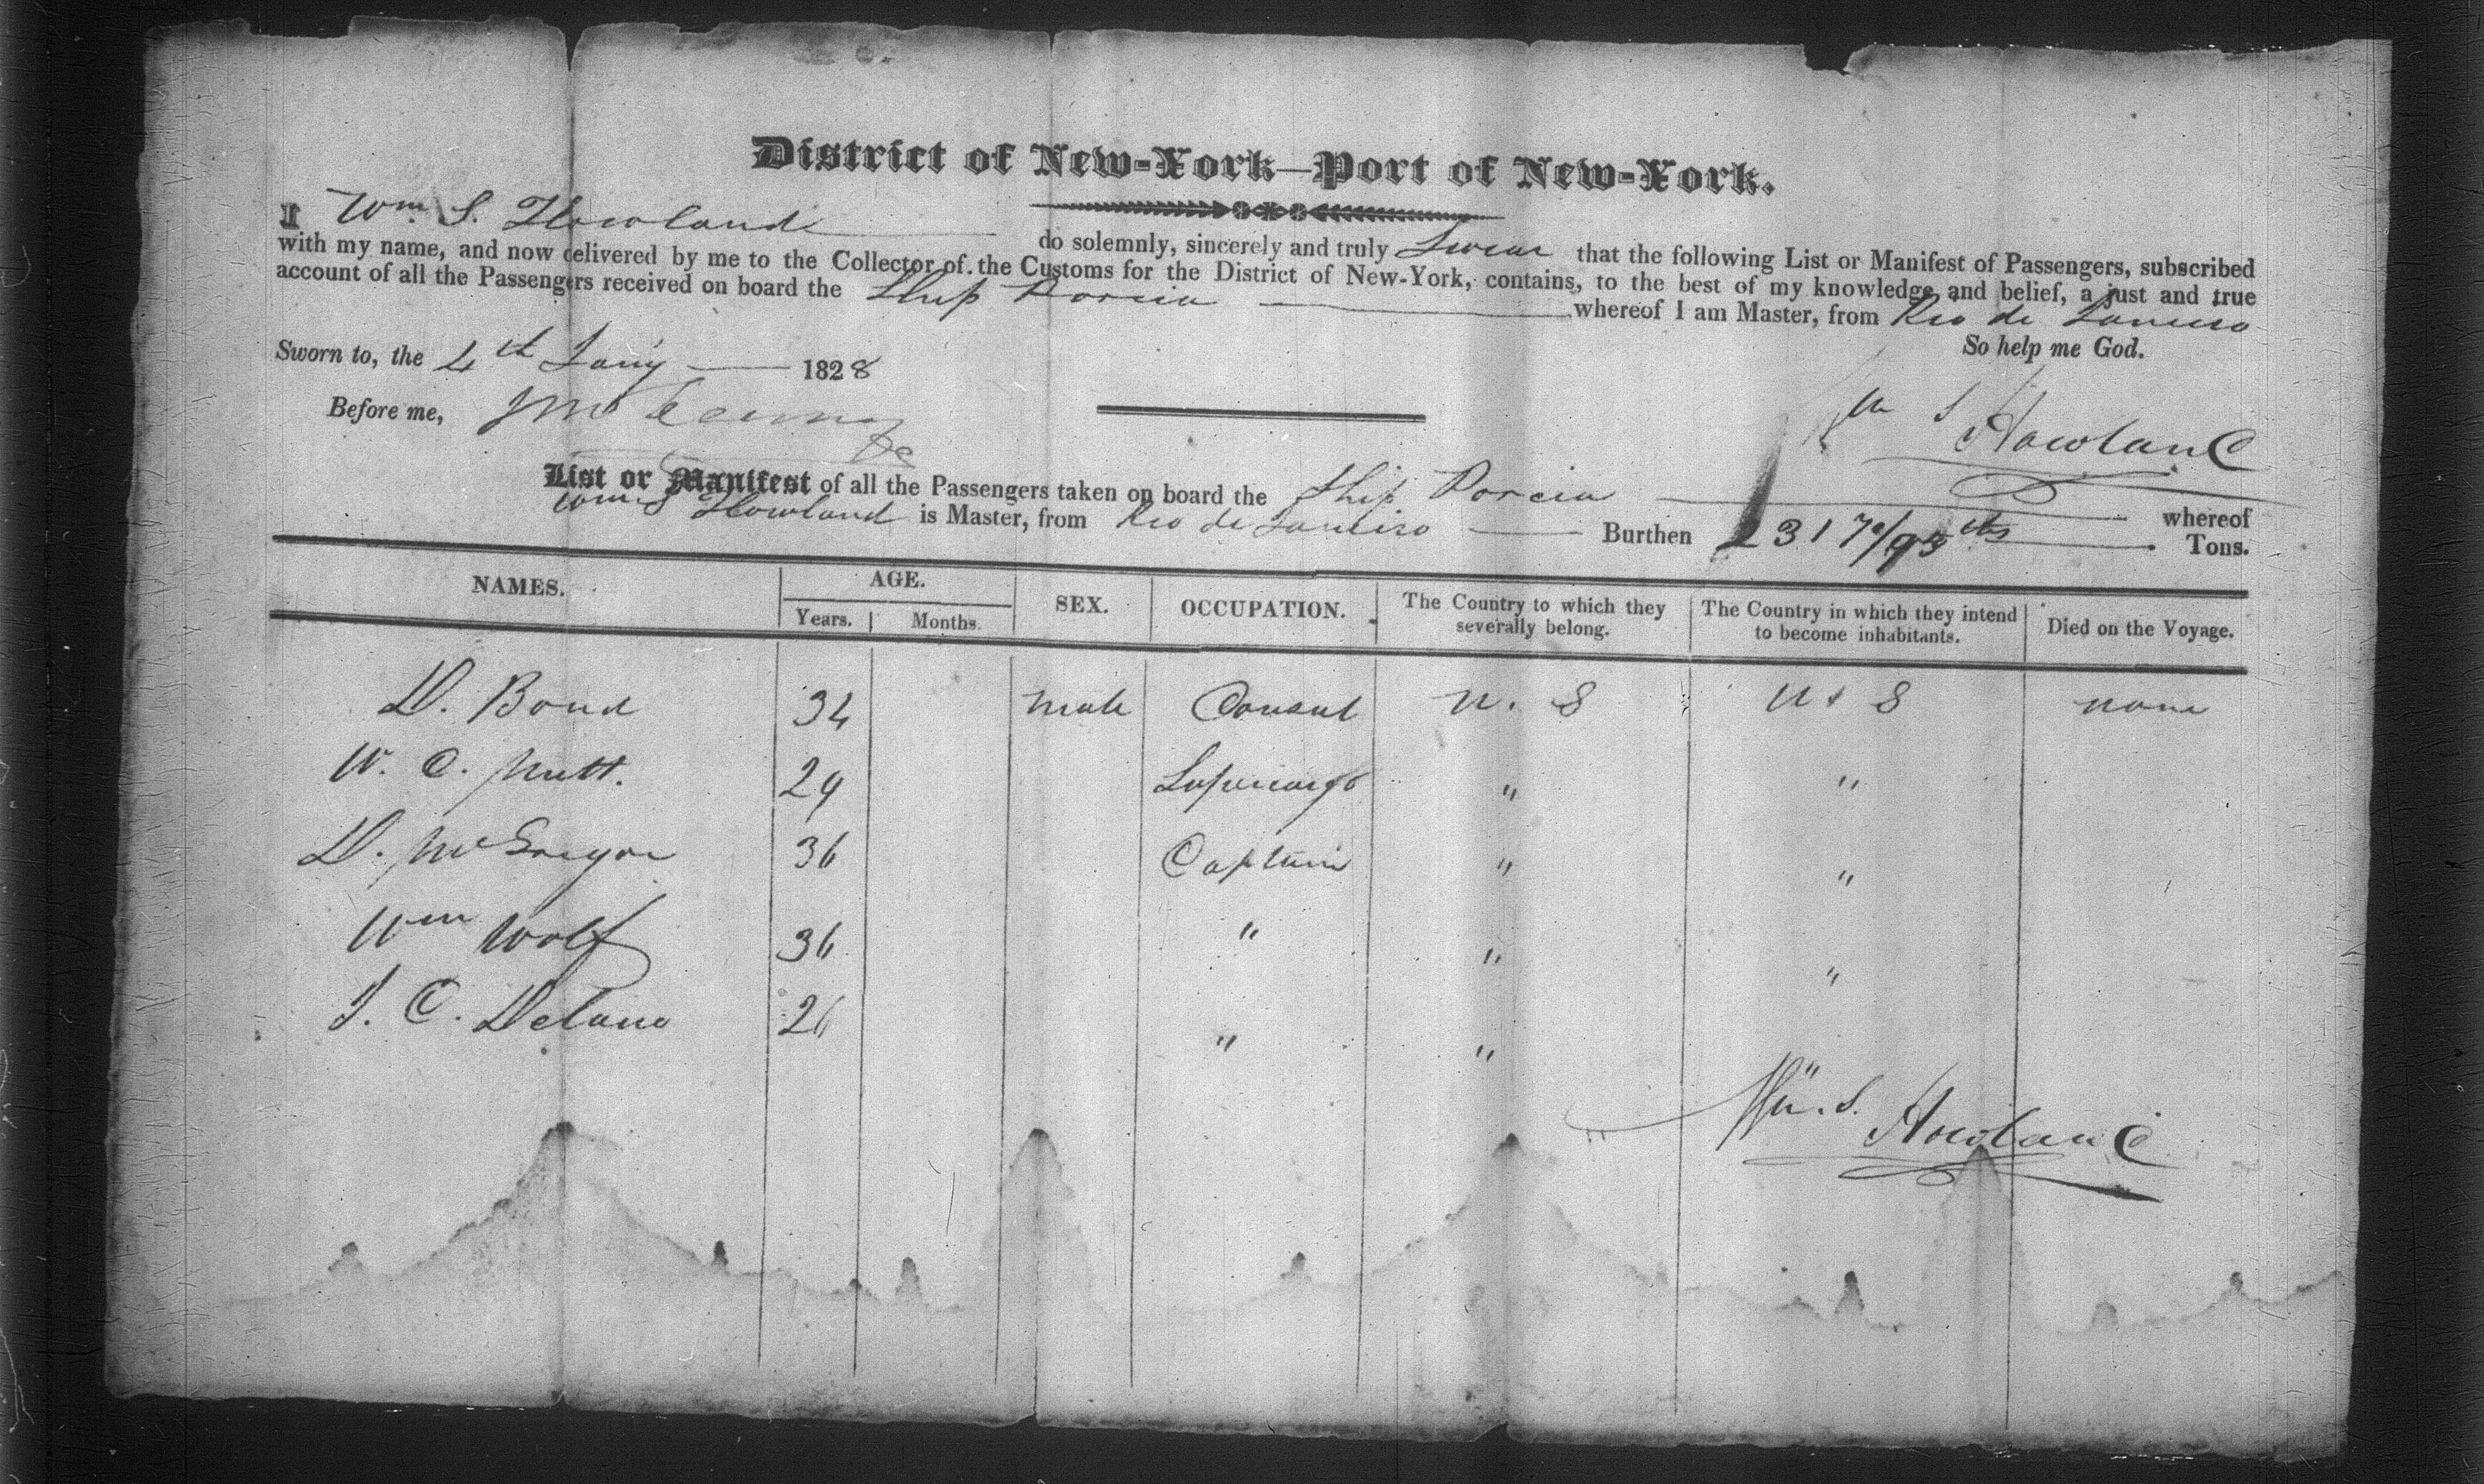 District of New-York—Port of New-York.
I Wm. S. Howland do solemnly, sincerely and truly Swear that the following List or Manifest of Passengers, subscribed
with my name, and now delivered by me to the Collector of the Customs for the District of New-York, contains, to the best of my knowledge and belief, a just and true
account of all the Passengers received on board the Ship Porcia whereof I am Master, from Rio de Janeiro
So help me God.
Sworn to, the 4th Jany 1828
Before me,
Wm S Howland
List or Manifest of all the Passengers taken on board the Ship Porcia whereof
Wm S Howland is Master, from Rio de Janeiro Burthen Tons.
NAMES. AGE. SEX. OCCUPATION. The Country to which they severally belong. The Country in which they intend to become inhabitants. Died on the Voyage.
Years. Months.
D. Bond 34 male Consul U. S U S none
W. C. Nutt. 29 Supercargo " "
D. McGregor 36 Captain " "
Wm Wolf 36 " " "
J. C. Delano 26 " " "
Wm. S. Howland